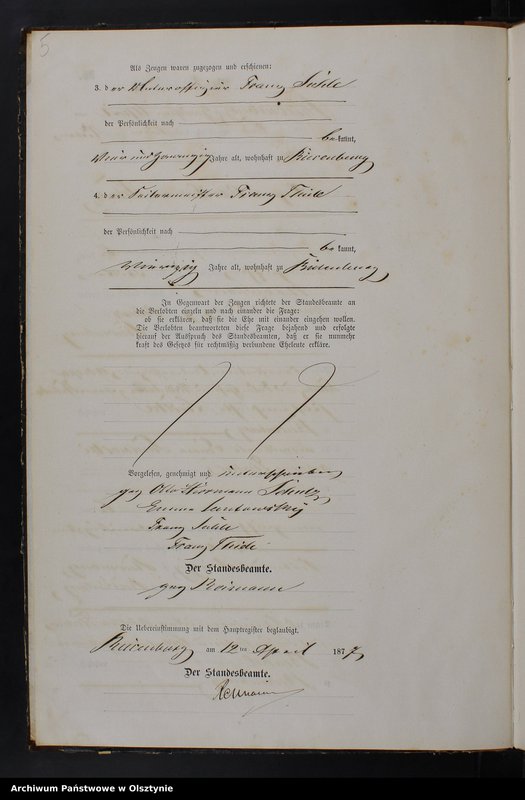 5
Als Zeugen waren zugezogen und erschienen:
3. der Unterofficier Franz
der Persönlichkeit nach
bekannt,
Jahre alt, wohnhaft zu Riesenburg
4. der Franz Thiele
der Persönlichkeit nach
bekannt,
vierzig Jahre alt, wohnhaft zu Riesenburg
In Gegenwart der Zeugen richtete der Standesbeamte an
die Verlobten einzeln und nach einander die Frage:
ob sie erklären, daß sie die Ehe mit einander eingehen wollen.
Die Verlobten beantworteten diese Frage bejahend und erfolgte
hierauf der Ausspruch des Standesbeamten, daß er sie nunmehr
kraft des Gesetzes für rechtmäßig verbundene Eheleute erkläre.
Vorgelesen, genehmigt und unterschrieben
gez Otto Herrmann
Emma
Franz
Franz Thiele
Der Standesbeamte.
gez Reimann
Die Uebereinstimmung mit dem Hauptregister beglaubigt.
Riesenburg am 12ten April 1877
Der Standesbeamte.
Reimann
Archiwum Państwowe w Olsztynie